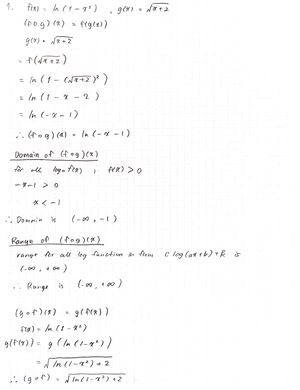 1. f(x) = ln (1 - x²) , g(x) = √x+2
(f o g) (x) = f(g(x))
g(x) = √x+2
= f(√x+2)
= ln (1 - (√x+2)²)
= ln (1 - x - 2)
= ln (-x - 1)
∴ (f o g)(x) = ln (-x - 1)
Domain of (f o g)(x)
for all log f(x) , f(x) > 0
-x-1 > 0
x < -1
∴ Domain is (-∞, -1)
Range of (f o g)(x)
range for all log function in form c log(ax+b)+k is
(-∞, +∞)
∴ Range is (-∞, +∞)
(g o f)(x) = g(f(x))
f(x) = ln (1 - x²)
g(f(x)) = g (ln (1 - x²))
= √ln(1-x²) + 2
∴ (g o f) = √ln(1-x²) + 2